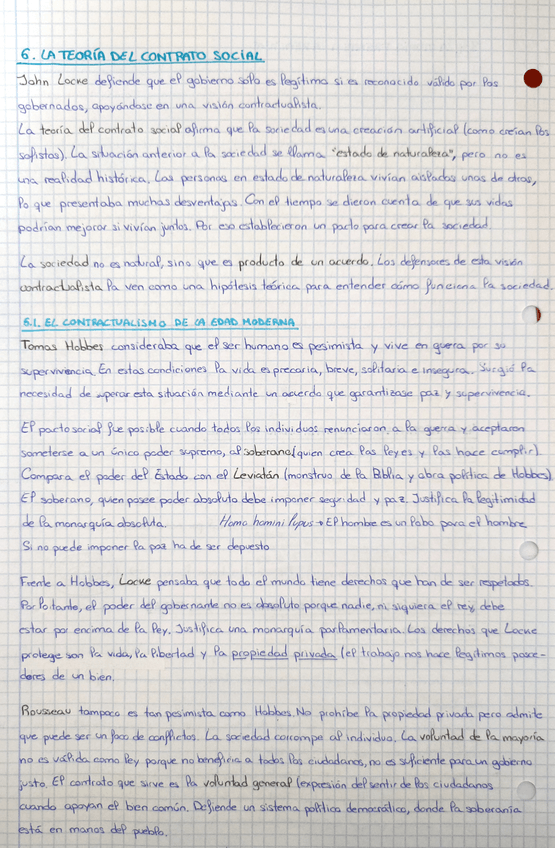 6. LA TEORÍA DEL CONTRATO SOCIAL
John Locke defiende que el gobierno sólo es legítimo si es reconocido válido por los
gobernados, apoyándose en una visión contractualista.
La teoría del contrato social afirma que la sociedad es una creación artificial (como creían los
sofistas). La situación anterior a la sociedad se llama "estado de naturaleza", pero no es
una realidad histórica. Las personas en estado de naturaleza vivían aisladas unas de otras,
lo que presentaba muchas desventajas. Con el tiempo se dieron cuenta de que sus vidas
podrían mejorar si vivían juntos. Por eso establecieron un pacto para crear la sociedad.
La sociedad no es natural, sino que es producto de un acuerdo. Los defensores de esta visión
contractualista la ven como una hipótesis teórica para entender cómo funciona la sociedad.
6.1. EL CONTRACTUALISMO DE LA EDAD MODERNA
Tomas Hobbes consideraba que el ser humano es pesimista y vive en guerra por su
supervivencia. En estas condiciones la vida es precaria, breve, solitaria e insegura. Surgió la
necesidad de superar esta situación mediante un acuerdo que garantizase paz y supervivencia.
El pacto social fue posible cuando todos los individuos renunciaron a la guerra y aceptaron
someterse a un único poder supremo, al soberano (quien crea las leyes y las hace cumplir).
Compara el poder del Estado con el Leviatán (monstruo de la Biblia y obra política de Hobbes)
El soberano, quien posee poder absoluto debe imponer seguridad y paz. Justifica la legitimidad
de la monarquía absoluta. Homo homini lupus → El hombre es un lobo para el hombre
Si no puede imponer la paz ha de ser depuesto
Frente a Hobbes, Locke pensaba que todo el mundo tiene derechos que han de ser respetados.
Por lo tanto, el poder del gobernante no es absoluto porque nadie, ni siquiera el rey, debe
estar por encima de la ley. Justifica una monarquía parlamentaria. Los derechos que Locke
protege son la vida, la libertad y la propiedad privada (el trabajo nos hace legítimos posee-
dores de un bien.
Rousseau tampoco es tan pesimista como Hobbes. No prohíbe la propiedad privada pero admite
que puede ser un foco de conflictos. La sociedad corrompe al individuo. La voluntad de la mayoría
no es válida como ley porque no beneficia a todos los ciudadanos, no es suficiente para un gobierno
justo. El contrato que sirve es la voluntad general (expresión del sentir de los ciudadanos
cuando apoyan el bien común. Defiende un sistema político democrático, donde la soberanía
está en manos del pueblo.